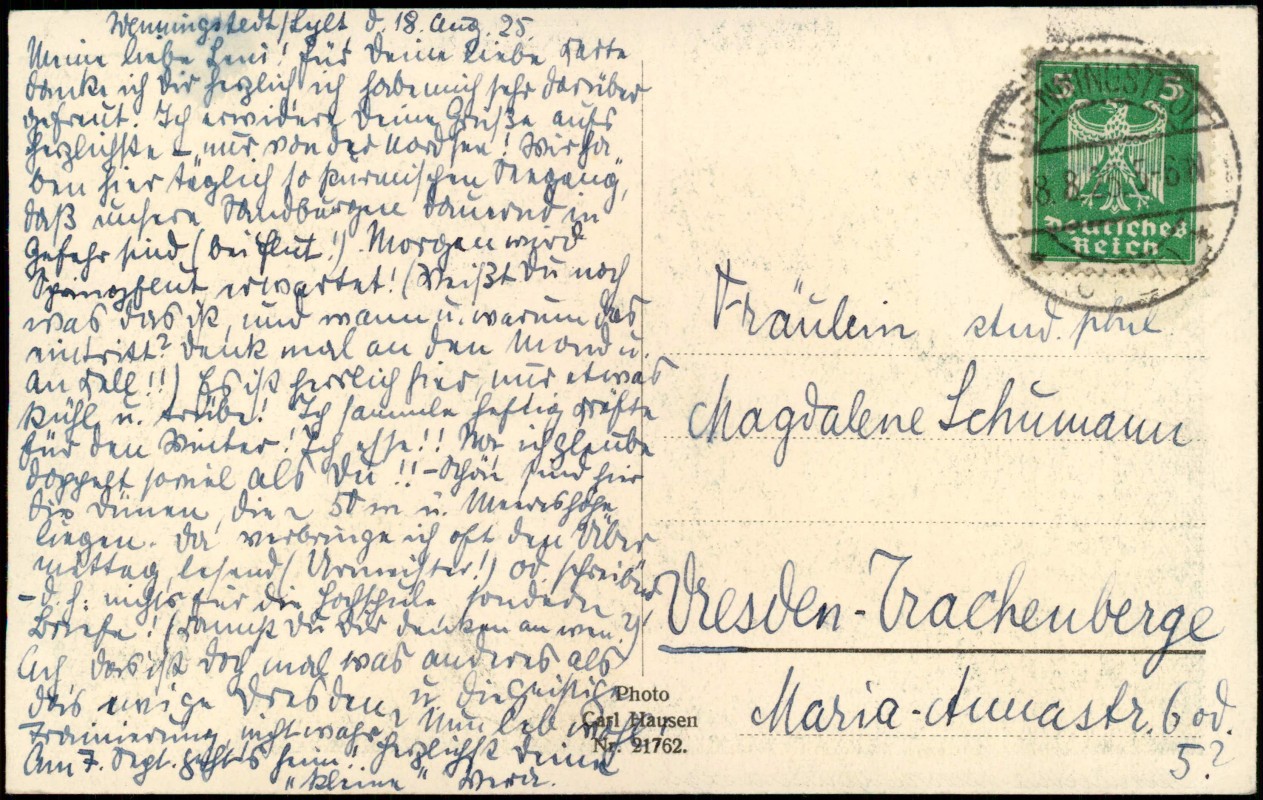 Wenningstedt/Sylt d. 18. Aug. 25.
Meine liebe Leni! Für Deine liebe Karte
danke ich Dir herzlich ich habe mich sehr darüber
gefreut. Ich erwidere Deine Grüße aufs
herzlichste – nur von der Nordsee! Wir ha
ben hier täglich so stürmischen Seegang,
daß unsere Sandburgen dauernd in
Gefahr sind (bei Flut!) Morgen wird
Springflut erwartet! (Weißt Du noch
was das ist, und wann u. warum das
eintritt? Denk mal an den Mond u.
an Kell!!) Es ist herrlich hier, nur etwas
kühl u. trübe! Ich sammle heftig Kräfte
für den Winter! Ich esse!! ich glaube
doppelt soviel als Du!! – Schön sind hier
die Dünen, die 50 m ü. Meereshöhe
liegen. Da verbringe ich oft den Über
mittag, lesend (Urmeister!) od. schreibend
– d. h. nichts für die Hochschule sondern
Briefe! (Kannst Du Dir denken an wen?)!
Ach das ist doch mal was anderes als
das ewige Dresden u. die geistige
Trainierung, nicht wahr? Nun leb wohl!
Am 7. Sept. geht's heim. Herzlichst Deine
"kleine"
Photo
Carl Hausen
Nr. 21762.
5 5
Deutsches
Reich
18.8.25. 5-6 N
Fräulein stud.
Magdalene Schumann
Dresden-Trachenberge
Maria-Annastr. 6 od.
5?